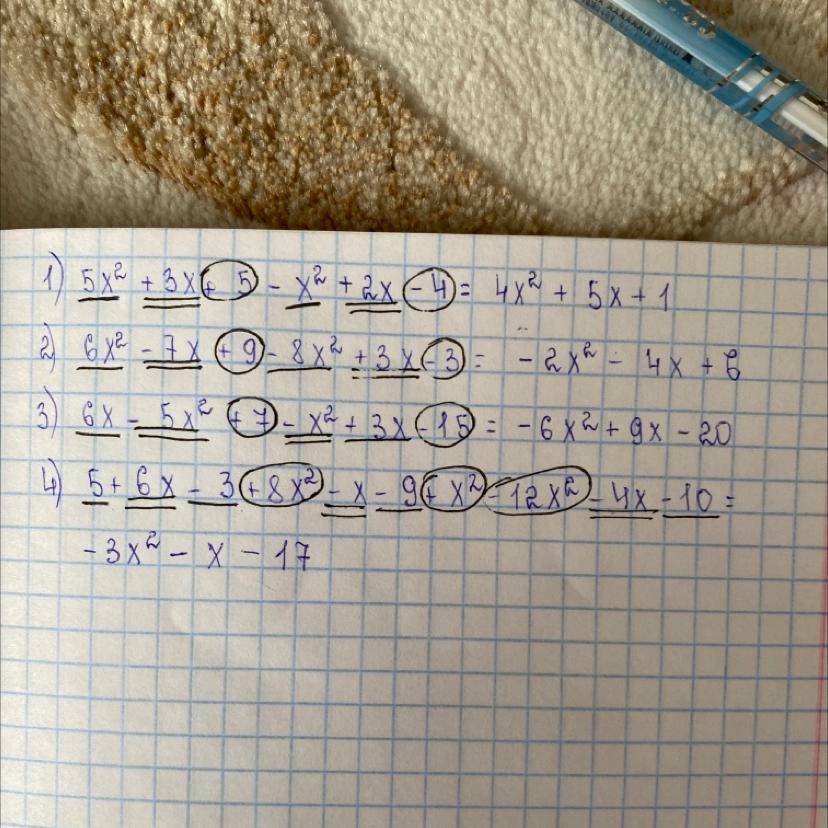 1) 5x² + 3x + 5 - x² + 2x - 4 = 4x² + 5x + 1
2) 6x² - 7x + 9 - 8x² + 3x - 3 = - 2x² - 4x + 6
3) 6x - 5x² + 7 - x² + 3x - 15 = - 6x² + 9x - 20
4) 5 + 6x - 3 + 8x² - x - 9 + x² - 12x² - 4x - 10 =
- 3x² - x - 17